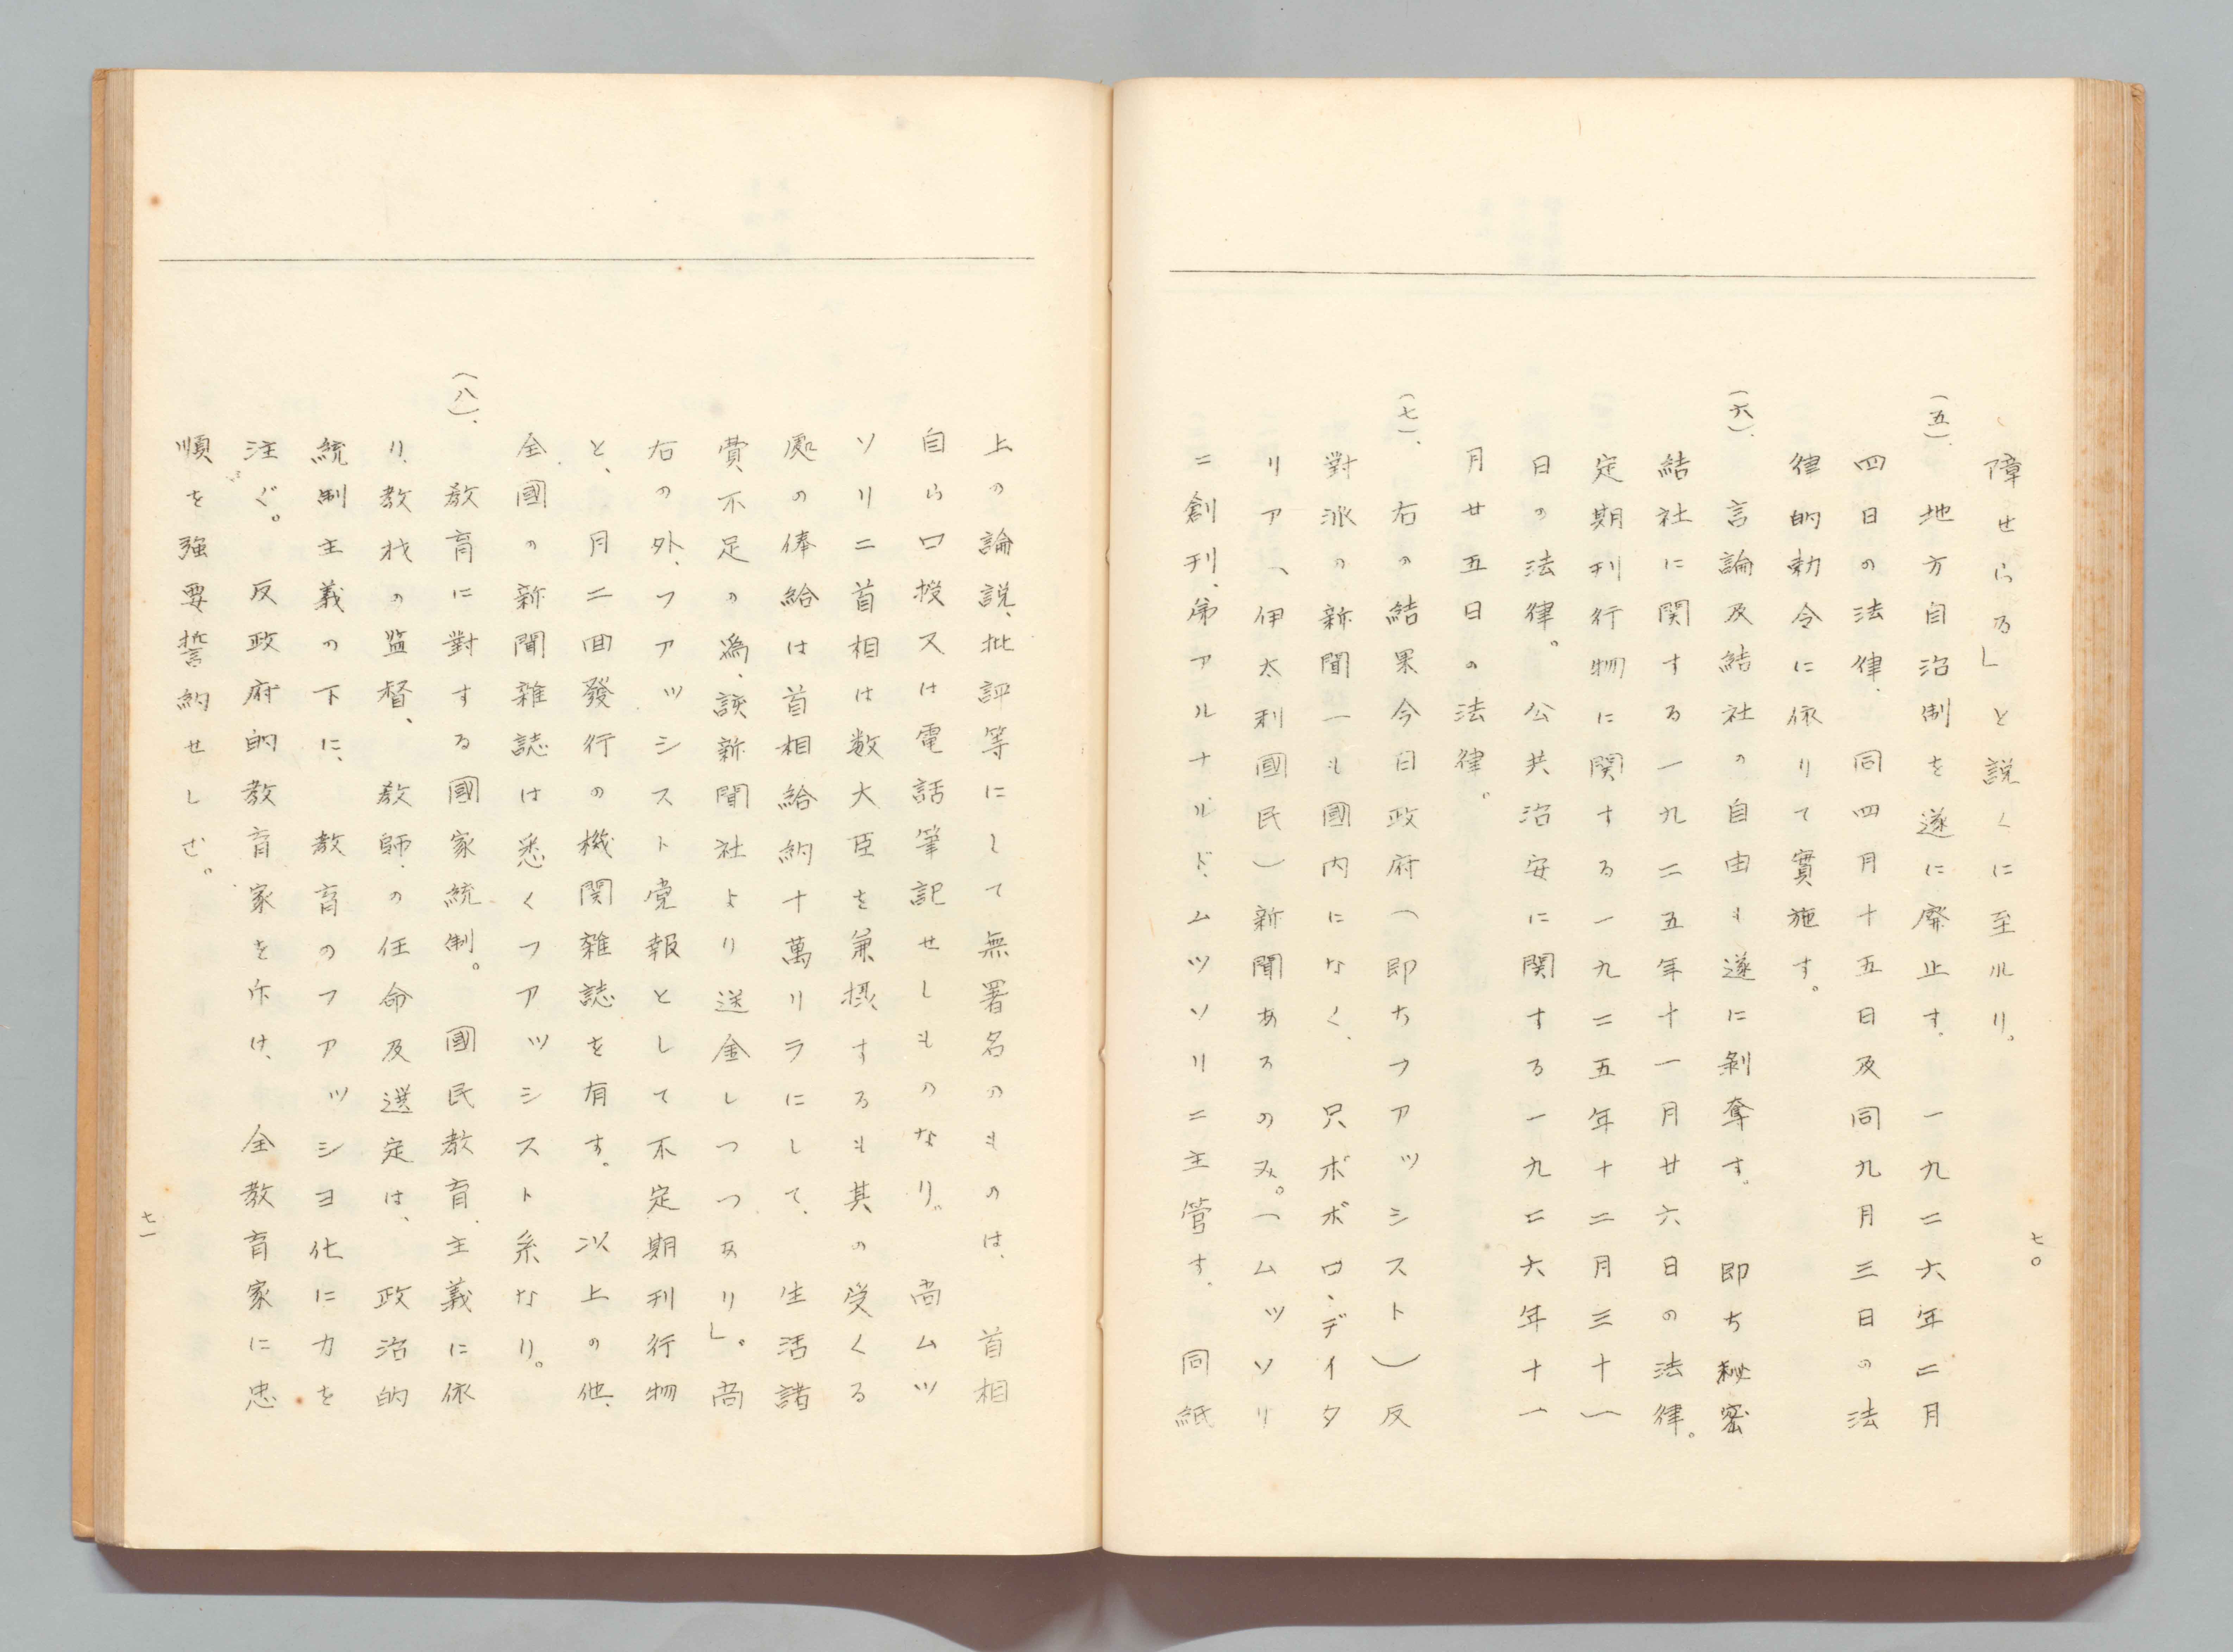 七〇
障せらる」と説くに至ルリ。
(五)、地方自治制を遂に廃止す、一九二六年二月
四日の法律、同四月十五日及同九月三日の法
律的勅令に依りて實施す。
(六)、言論及結社の自由も遂に剝奪す。即ち秘密
結社に関する一九二五年十一月廿六日の法律。
定期刊行物に関する一九二五年十二月三十一
日の法律。公共治安に関する一九二六年十一
月廿五日の法律。
(七)、右の結果今日政府(即ちファッシスト)反
對派の新聞一も國内になく、只ポポロ、デイタ
リア、(伊太利國民)新聞あるのみ。(ムッソリ
ニ創刊、弟アルナルド、ムッソリニ主管す、同紙
上の論説、批評等にして無署名のものは、首相
自ら口授又は電話筆記せしものなり。尚ムッ
ソリニ首相は数大臣を兼摂するも其の受くる
処の俸給は首相給約十萬リラにして、生活諸
費不足の為、該新聞社より送金しつつあり」。尚
右の外、ファッシスト党報として不定期刊行物
と、月二回發行の機関雑誌を有す。以上の他、
全國の新聞雑誌は悉くファッシスト系なり。
(八)、教育に對する國家統制。國民教育、主義に依
り、教材の監督、教師の任命及選定は、政治的
統制主義の下に、教育のファッショ化に力を
注ぐ。反政府的教育家を斥け、全教育家に忠
順を強要誓約せしむ。
七一